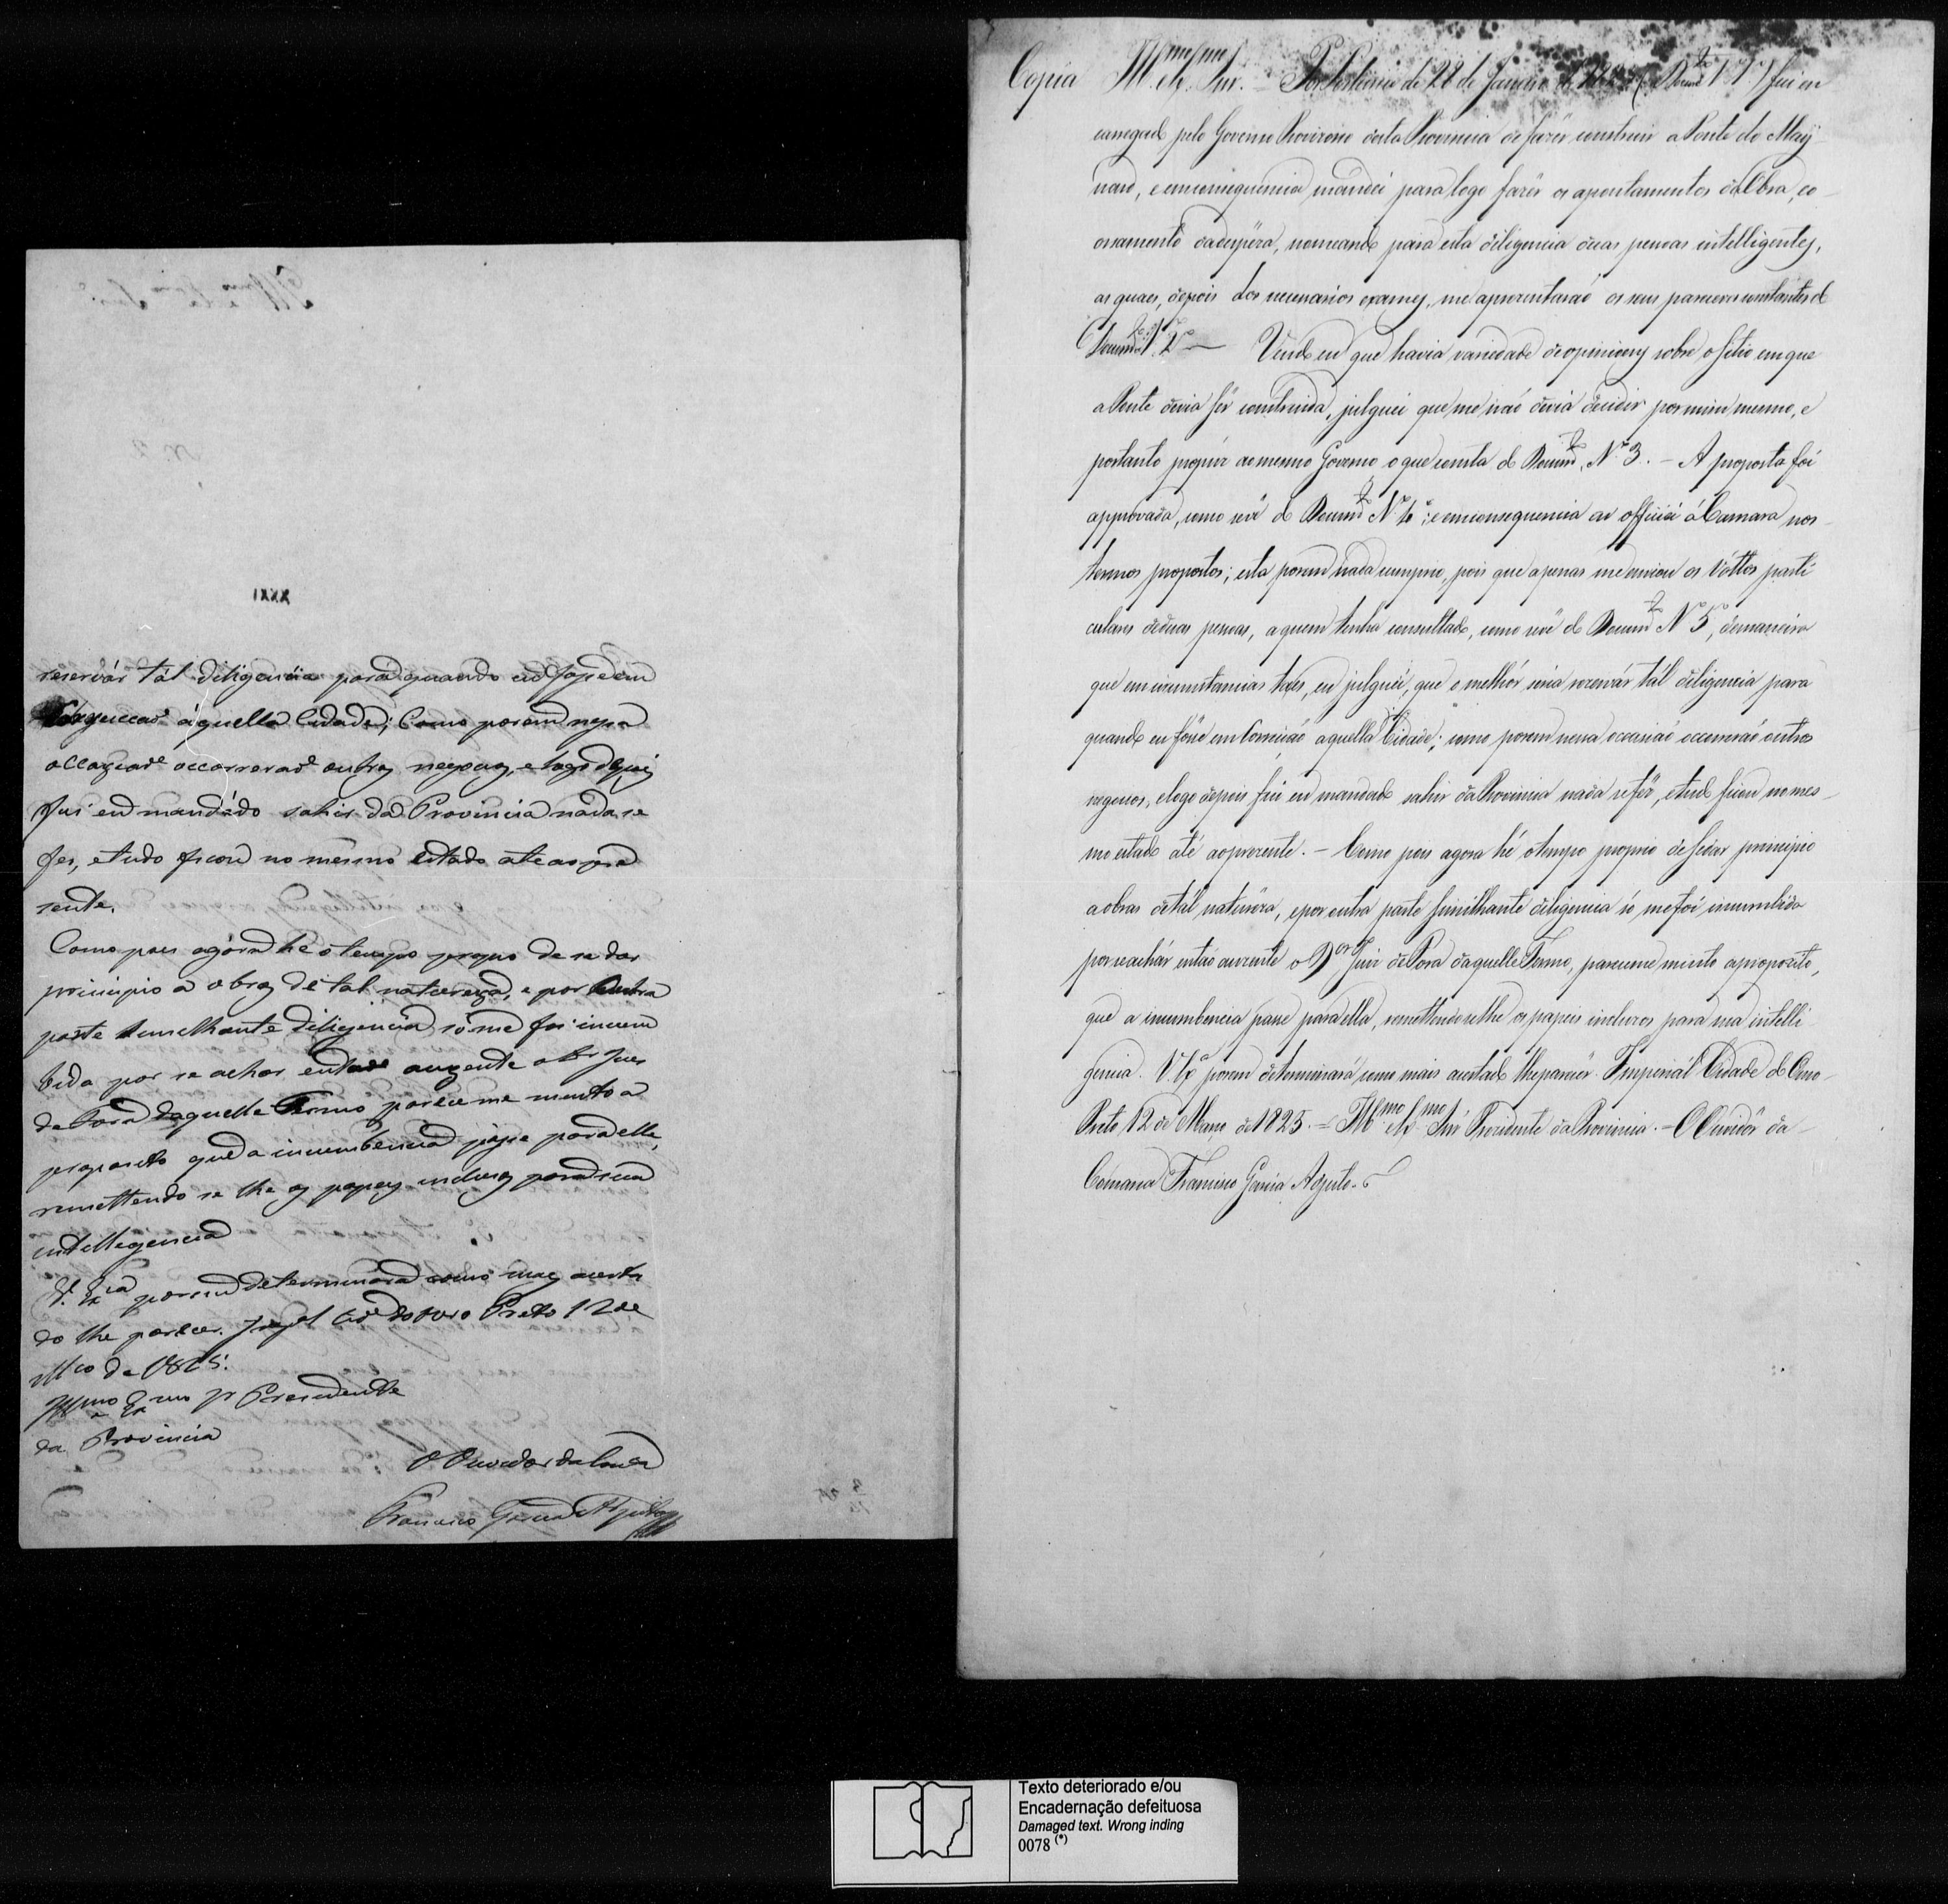 reservár tál diligencia para quando eu fosse em
Correiçaõ áquella Cidade; Como porem nessa
occaziaõ occorreraõ outros negocios, e logo depois
fui eu mandádo sahir da Provincia nada se
fez, e tudo ficou no mesmo estado ate ao pre
sente.
Como pois agóra he o tempo proprio de se dar
principio a obras de tal natureza, e por outra
parte semelhante diligencia só me foi incum
bida por se achar entaõ auzente o Dr Juiz
de Fora daquelle Termo parece me muito a
proposito que a incumbencia passe para elle,
remettendo se lhe os papeis incluzos para sua
intelligencia
V. Exia porem determinará como mais acerta
do lhe parecer. Impal Cide do Ouro Preto 12 de
Mço de 1825.
Illmo e Exmo Sr Presidente
da Provincia
O Ouvedor da Comca
Francisco Garcia Adjuto
Copia Illmo e Exmo Snr. = Por Portaria de 28 de Janeiro de (Docum.to 1º) fui en
carregado pelo Governo Provizorio desta Provincia de fazer construir a Ponte do May
nard, e em consequencia mandei para logo fazêr os apontamentos da Obra, e o
orsamento da despêza, nomeando para esta diligencia duas pessoas intelligentes,
as quaes, depois dos necessarios exames, me aprezentaraõ os seus pareceres constantes do
Docum.to N. 2º — Vendo eu que havia variedade de opinioens sobre o sitio em que
a Ponte devia sêr construida, julguei que me naõ devia decidir por mim mesmo, e
portanto propuz ao mesmo Governo o que consta do Docum.to Nº 3. – A proposta foi
approvada, como se vê do Docum.to Nº 4º; e em consequencia officiei á Camara nos
termos propostos; esta porem nada cumprio, pois que apenas me enviou os Vóttos parti
culares de duas pessoas, a quem tinha consultado, como se vê do Docum.to Nº 5º, de maneira
que em circunstancias taes, eu julguei, que o melhór seria rezervár tál diligencia para
quando eu fôsse em Correiçaõ aquella Cidade; como porem nessa occasiaõ occorreraõ outros
negocios, e logo depois fui eu mandado sahir da Provincia nada se fêz, e tudo ficou no mes-
mo estado até ao prezente. – Como pois agora hé o tempo proprio de se dar principio
a obras de tál naturêza, e por outra parte similhante diligencia só me foi incumbida
por se achár entaõ auzente o Dor Juiz de Fora daquelle Termo, parece me muito a proposito,
que a incumbencia passe para elle, remettendo se lhe os papeis incluzos para sua intelli
gencia. V. Exa porem determinará como mais acertado lhe parecêr. Imperiál Cidade do Ouro-
Preto 12 de Março de 1825. = Illmo e Exmo Snr Prezidente da Provincia. – O Ouvidôr da
Comarca Francisco Garcia Adjuto.
Texto deteriorado e/ou
Encadernação defeituosa
Damaged text. Wrong inding
0078 (*)